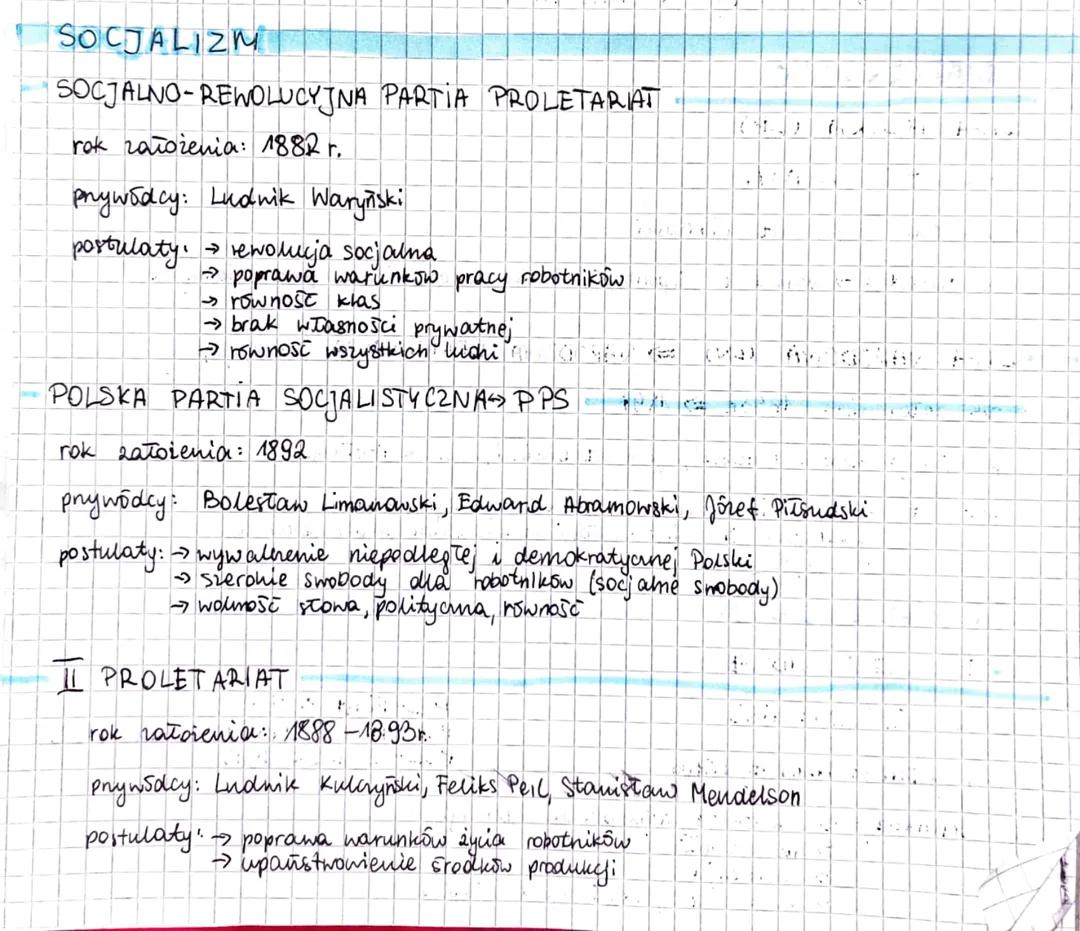 SOCJALIZM
SOCJALNO-REWOLUCYJNA PARTIA PROLETARIAT
rok założenia: 1882 r.
przywódcy: Ludwik Waryński
postulaty: → rewolucja socjalna
→ poprawa warunków pracy robotników
→ równość klas
→ brak własności prywatnej
→ równość wszystkich ludzi
POLSKA PARTIA SOCJALISTYCZNA ↔ PPS
rok założenia: 1892
przywódcy: Bolesław Limanowski, Edward Abramowski, Józef Piłsudski
postulaty: → wywalczenie niepodległej i demokratycznej Polski
→ szerokie swobody dla robotników (socjalne swobody)
→ wolność słowa, polityczna, równość
II PROLETARIAT
rok założenia: 1888 - 1893r.
przywódcy: Ludwik Kulczyński, Feliks Perl, Stanisław Mendelson
postulaty: → poprawa warunków życia robotników
→ upaństwowienie środków produkcji